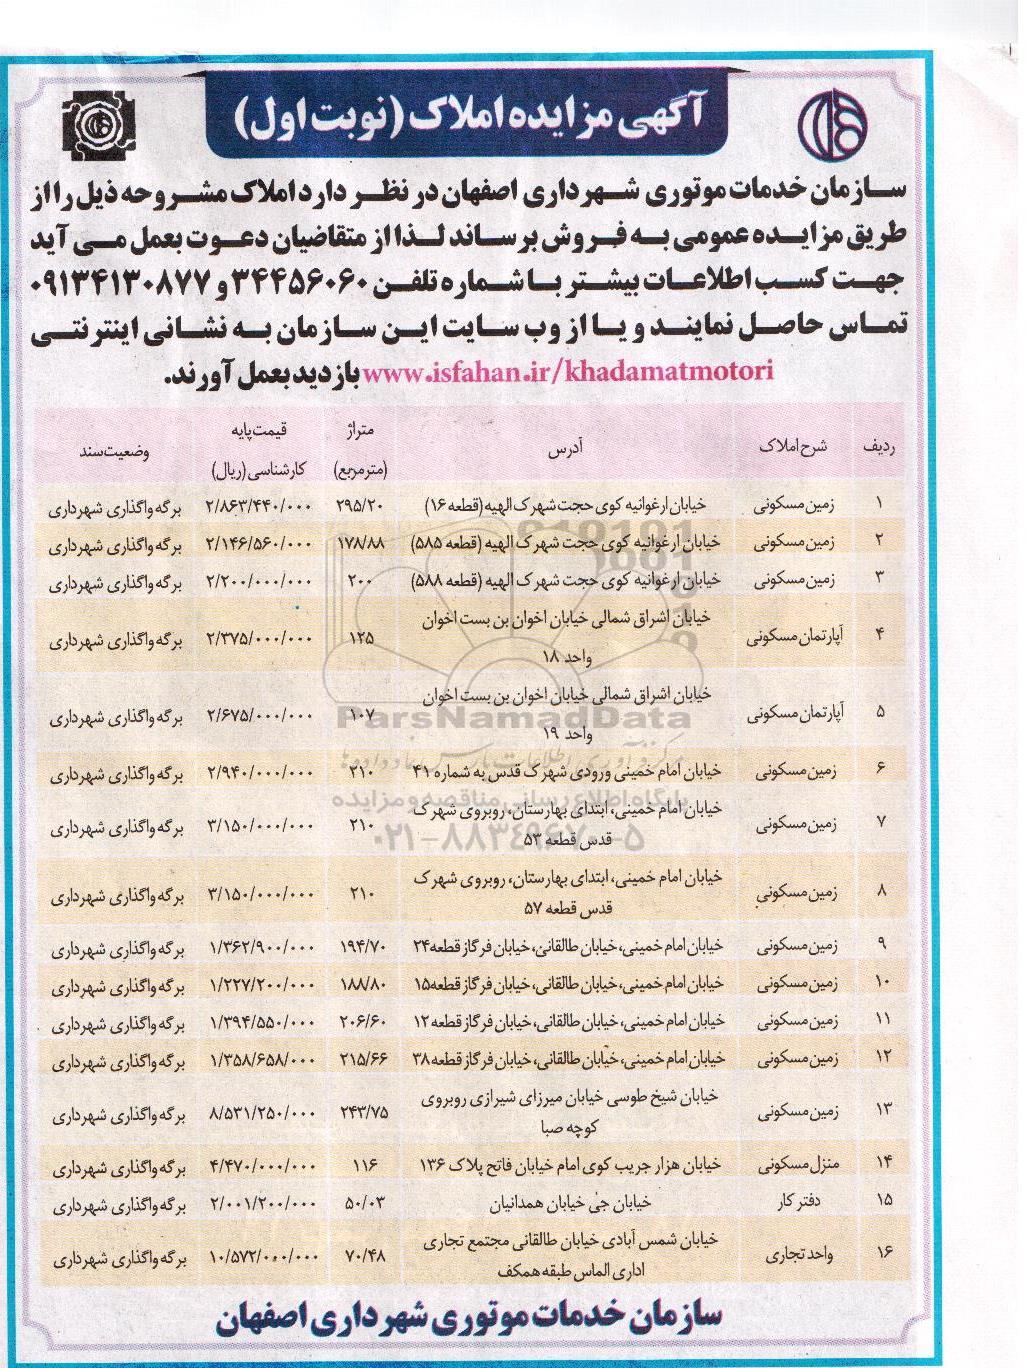 آگهی مزایده املاک (نوبت اول)
سازمان خدمات موتوری شهرداری اصفهان در نظر دارد املاک مشروحه ذیل را از
طریق مزایده عمومی به فروش برساند لذا از متقاضیان دعوت بعمل می آید
جهت کسب اطلاعات بیشتر با شماره تلفن ۳۴۴۵۶۰۶۰ و ۰۹۱۳۴۱۳۰۸۷۷
تماس حاصل نمایند و یا از وب سایت این سازمان به نشانی اینترنتی
www.isfahan.ir/khadamatmotori بازدید بعمل آورند.
ردیف شرح املاک آدرس متراژ (مترمربع) قیمت پایه کارشناسی (ریال) وضعیت سند
۱ زمین مسکونی خیابان ارغوانیه کوی حجت شهرک الهیه (قطعه ۱۶) ۲۹۵/۲۰ ۲/۸۶۳/۴۴۰/۰۰۰ برگه واگذاری شهرداری
۲ زمین مسکونی خیابان ارغوانیه کوی حجت شهرک الهیه (قطعه ۵۸۵) ۱۷۸/۸۸ ۲/۱۴۶/۵۶۰/۰۰۰ برگه واگذاری شهرداری
۳ زمین مسکونی خیابان ارغوانیه کوی حجت شهرک الهیه (قطعه ۵۸۸) ۲۰۰ ۲/۲۰۰/۰۰۰/۰۰۰ برگه واگذاری شهرداری
۴ آپارتمان مسکونی خیابان اشراق شمالی خیابان اخوان بن بست اخوان
واحد ۱۸ ۱۲۵ ۲/۳۷۵/۰۰۰/۰۰۰ برگه واگذاری شهرداری
۵ آپارتمان مسکونی خیابان اشراق شمالی خیابان اخوان بن بست اخوان
واحد ۱۹ ۱۰۷ ۲/۶۷۵/۰۰۰/۰۰۰ برگه واگذاری شهرداری
۶ زمین مسکونی خیابان امام خمینی ورودی شهرک قدس به شماره ۴۱ ۲۱۰ ۲/۹۴۰/۰۰۰/۰۰۰ برگه واگذاری شهرداری
۷ زمین مسکونی خیابان امام خمینی، ابتدای بهارستان، روبروی شهرک
قدس قطعه ۵۳ ۲۱۰ ۳/۱۵۰/۰۰۰/۰۰۰ برگه واگذاری شهرداری
۸ زمین مسکونی خیابان امام خمینی، ابتدای بهارستان، روبروی شهرک
قدس قطعه ۵۷ ۲۱۰ ۳/۱۵۰/۰۰۰/۰۰۰ برگه واگذاری شهرداری
۹ زمین مسکونی خیابان امام خمینی، خیابان طالقانی، خیابان فرگاز قطعه ۲۴ ۱۹۴/۷۰ ۱/۳۶۲/۹۰۰/۰۰۰ برگه واگذاری شهرداری
۱۰ زمین مسکونی خیابان امام خمینی، خیابان طالقانی، خیابان فرگاز قطعه ۱۵ ۱۸۸/۸۰ ۱/۲۲۷/۲۰۰/۰۰۰ برگه واگذاری شهرداری
۱۱ زمین مسکونی خیابان امام خمینی، خیابان طالقانی، خیابان فرگاز قطعه ۱۲ ۲۰۶/۶۰ ۱/۳۹۴/۵۵۰/۰۰۰ برگه واگذاری شهرداری
۱۲ زمین مسکونی خیابان امام خمینی، خیابان طالقانی، خیابان فرگاز قطعه ۳۸ ۲۱۵/۶۶ ۱/۳۵۸/۶۵۸/۰۰۰ برگه واگذاری شهرداری
۱۳ زمین مسکونی خیابان شیخ طوسی خیابان میرزای شیرازی روبروی
کوچه صبا ۲۴۳/۷۵ ۸/۵۳۱/۲۵۰/۰۰۰ برگه واگذاری شهرداری
۱۴ منزل مسکونی خیابان هزار جریب کوی امام خیابان فاتح پلاک ۱۳۶ ۱۱۶ ۴/۴۷۰/۰۰۰/۰۰۰ برگه واگذاری شهرداری
۱۵ دفتر کار خیابان جی خیابان همدانیان ۵۰/۰۳ ۲/۰۰۱/۲۰۰/۰۰۰ برگه واگذاری شهرداری
۱۶ واحد تجاری خیابان شمس آبادی خیابان طالقانی مجتمع تجاری
اداری الماس طبقه همکف ۷۰/۴۸ ۱۰/۵۷۲/۰۰۰/۰۰۰ برگه واگذاری شهرداری
سازمان خدمات موتوری شهرداری اصفهان
ParsNamadData
پایگاه اطلاع رسانی مناقصه و مزایده
۰۲۱-۸۸۳۴۹۶۷۰-۵